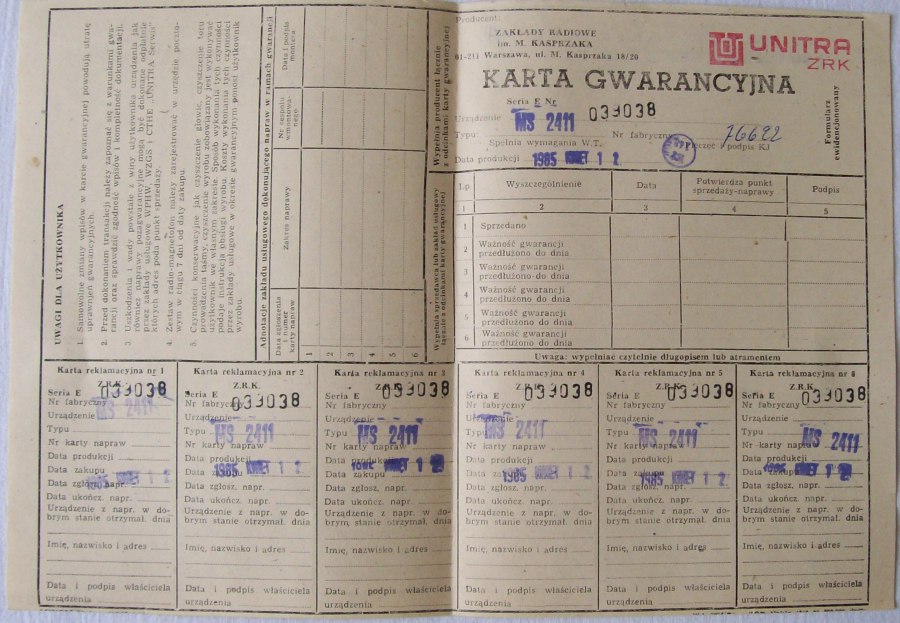 UWAGI DLA UŻYTKOWNIKA
1. Samowolne zmiany wpisów w karcie gwarancyjnej powodują utratę
uprawnień gwarancyjnych.
2. Przed dokonaniem transakcji należy zapoznać się z warunkami gwa-
rancji oraz sprawdzić zgodność wpisów i kompletność dokumentacji.
3. Uszkodzenia i wady powstałe z winy użytkownika urządzenia jak
również naprawy pozagwarancyjne mogą być dokonane odpłatnie
przez zakłady usługowe WPHW, WZGS i CTHE „UNITRA Serwis"
których adres poda punkt sprzedaży.
4. Zestaw radio-magnetofon należy zarejestrować w urzędzie poczto-
wym w ciągu 7 dni od daty zakupu.
5. Czynności konserwacyjne jak czyszczenie głowic, czyszczenie toru
prowadzenia taśmy, czyszczenie wyrobu zobowiązany jest wykonywać
użytkownik we własnym zakresie. Sposób wykonania tych czynności
podaje instrukcja obsługi wyrobu. Koszty wykonania tych czynności
przez zakłady usługowe w okresie gwarancyjnym ponosi użytkownik
wyrobu.
Adnotacje zakładu usługowego dokonującego napraw w ramach gwarancji
Data zgłoszenia
i numer
karty napraw
Zakres naprawy
Nr zespołu
wmontowa-
nego
Data i podpis
montera
1
2
3
4
5
6
Wypełnia producent łącznie
z odcinkami karty gwarancyjnej
Wypełnia sprzedawca lub zakład usługowy
łącznie z odcinkami karty gwarancyjnej
Producent:
ZAKŁADY RADIOWE
im. M. KASPRZAKA
01-211 Warszawa, ul. M. Kasprzaka 18/20
UNITRA
ZRK
KARTA GWARANCYJNA
Seria E Nr 039038
Urządzenie MS 2411
Typu: Nr fabryczny 76622
Spełnia wymagania W.T. Pieczęć i podpis KJ
Data produkcji 1985 KWIE 12
Formularz
ewidencjonowany
Lp. Wyszczególnienie Data Potwierdza punkt
sprzedaży-naprawy Podpis
1 2 3 4 5
1 Sprzedano
2 Ważność gwarancji
przedłużono do dnia
3 Ważność gwarancji
przedłużono do dnia
4 Ważność gwarancji
przedłużono do dnia
5 Ważność gwarancji
przedłużono do dnia
6 Ważność gwarancji
przedłużono do dnia
Uwaga: wypełniać czytelnie długopisem lub atramentem
Karta reklamacyjna nr 1
Z.R.K.
Seria E 039038
Nr fabryczny
Urządzenie MS 2411
Typu
Nr karty napraw
Data produkcji
Data zakupu 1985 KWIE 12
Data zgłosz. napr.
Data ukończ. napr.
Urządzenie z napr. w do-
brym stanie otrzymał. dnia
Imię, nazwisko i adres
Data i podpis właściciela
urządzenia
Karta reklamacyjna nr 2
Z.R.K.
Seria E 039038
Nr fabryczny
Urządzenie
Typu MS 2411
Nr karty napraw
Data produkcji
Data zakupu 1985 KWIE 12
Data zgłosz. napr.
Data ukończ. napr.
Urządzenie z napr. w do-
brym stanie otrzymał. dnia
Imię, nazwisko i adres
Data i podpis właściciela
urządzenia
Karta reklamacyjna nr 3
Z.R.K.
Seria E 039038
Nr fabryczny
Urządzenie
Typu MS 2411
Nr karty napraw
Data produkcji 1985 KWIE 12
Data zakupu
Data zgłosz. napr.
Data ukończ. napr.
Urządzenie z napr. w do-
brym stanie otrzymał. dnia
Imię, nazwisko i adres
Data i podpis właściciela
urządzenia
Karta reklamacyjna nr 4
Z.R.K.
Seria E 039038
Nr fabryczny
Urządzenie
Typu MS 2411
Nr karty napraw
Data produkcji
Data zakupu 1985 KWIE 12
Data zgłosz. napr.
Data ukończ. napr.
Urządzenie z napr. w do-
brym stanie otrzymał. dnia
Imię, nazwisko i adres
Data i podpis właściciela
urządzenia
Karta reklamacyjna nr 5
Z.R.K.
Seria E 039038
Nr fabryczny
Urządzenie
Typu MS 2411
Nr karty napraw
Data produkcji
Data zakupu 1985 KWIE 12
Data zgłosz. napr.
Data ukończ. napr.
Urządzenie z napr. w do-
brym stanie otrzymał. dnia
Imię, nazwisko i adres
Data i podpis właściciela
urządzenia
Karta reklamacyjna nr 6
Z.R.K.
Seria E 039038
Nr fabryczny
Urządzenie
Typu MS 2411
Nr karty napraw
Data produkcji
Data zakupu 1985 KWIE 12
Data zgłosz. napr.
Data ukończ. napr.
Urządzenie z napr. w do-
brym stanie otrzymał. dnia
Imię, nazwisko i adres
Data i podpis właściciela
urządzenia